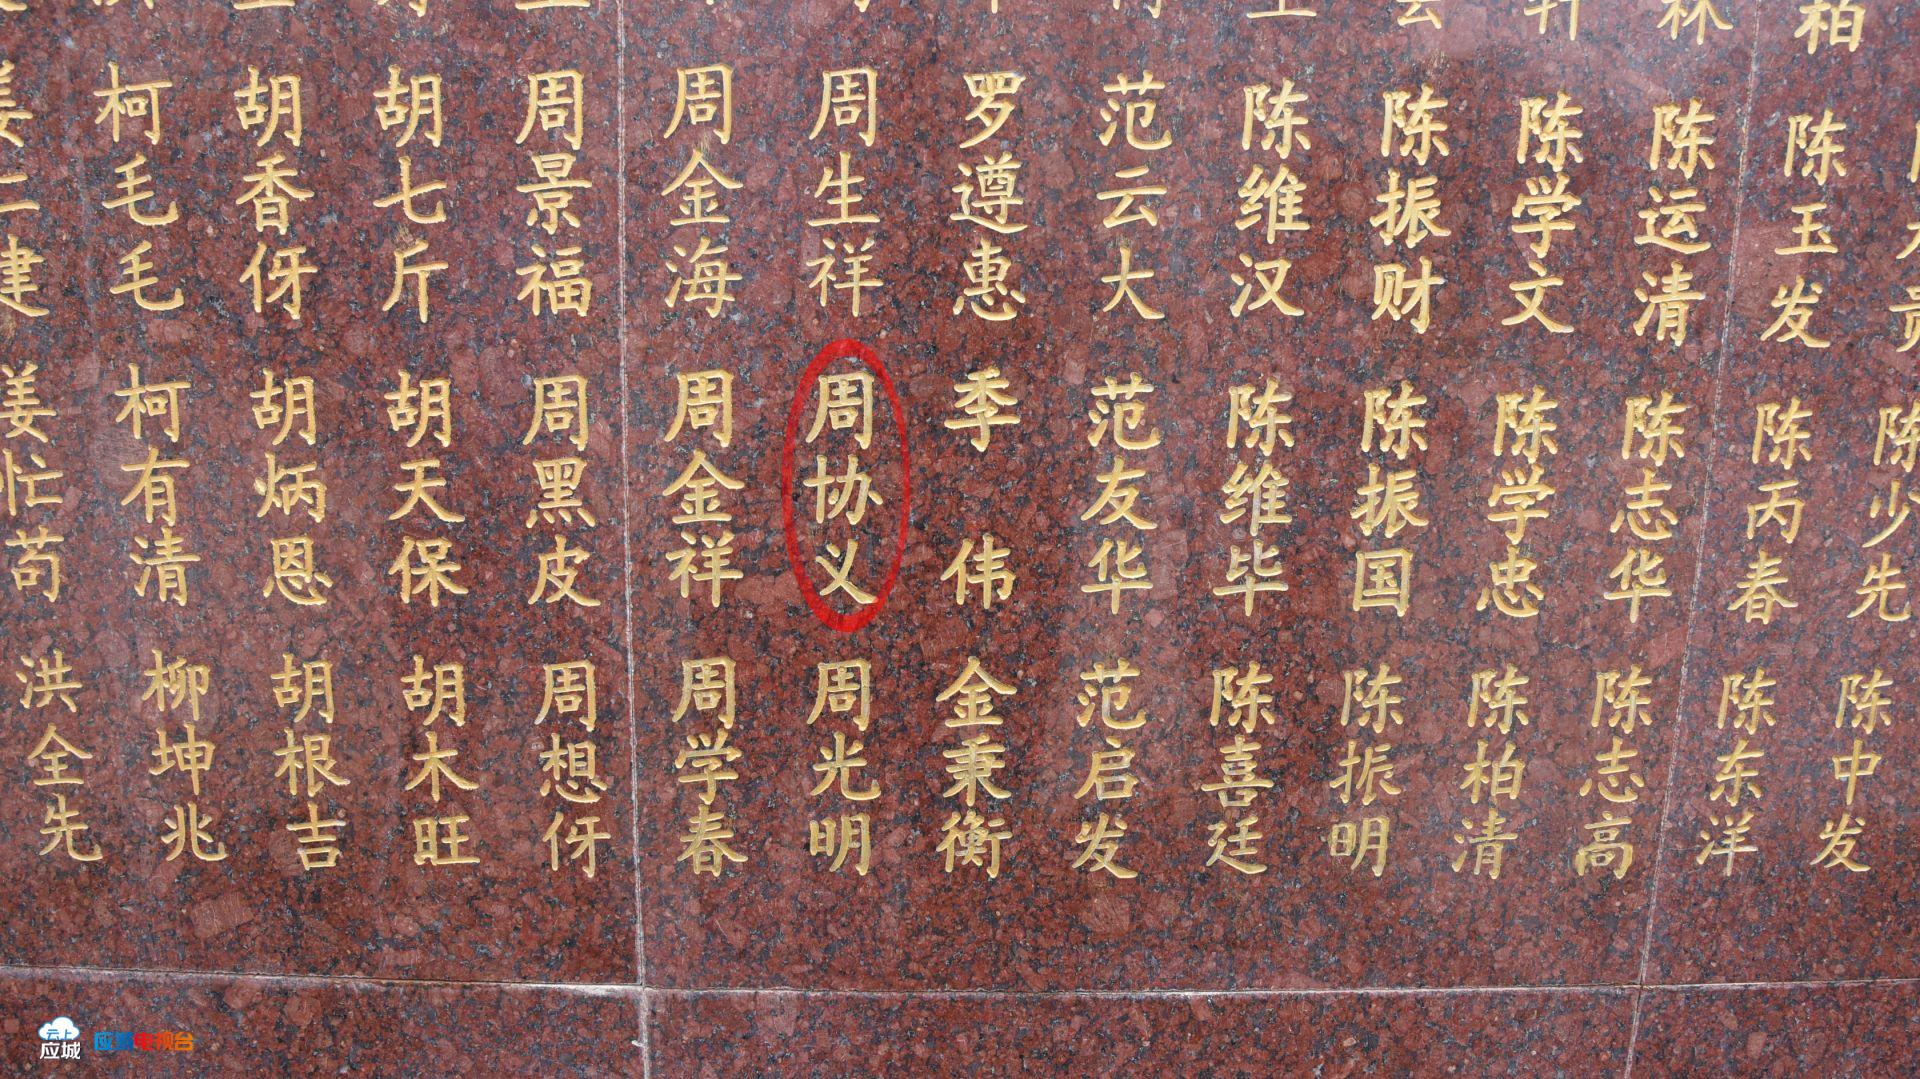 柏
姜二建
柯毛毛
胡香伢
胡七斤
周景福
周金海
周生祥
罗遵惠
范云大
陈维汉
陈振财
陈学文
陈运清
陈玉发
姜忙苟
柯有清
胡炳恩
胡天保
周黑皮
周金祥
周协义
季伟
范友华
陈维毕
陈振国
陈学忠
陈志华
陈丙春
陈少先
洪全先
柳坤兆
胡根吉
胡木旺
周想伢
周学春
周光明
金秉衡
范启发
陈喜廷
陈振明
陈柏清
陈志高
陈东洋
陈中发
云上应城
应城电视台